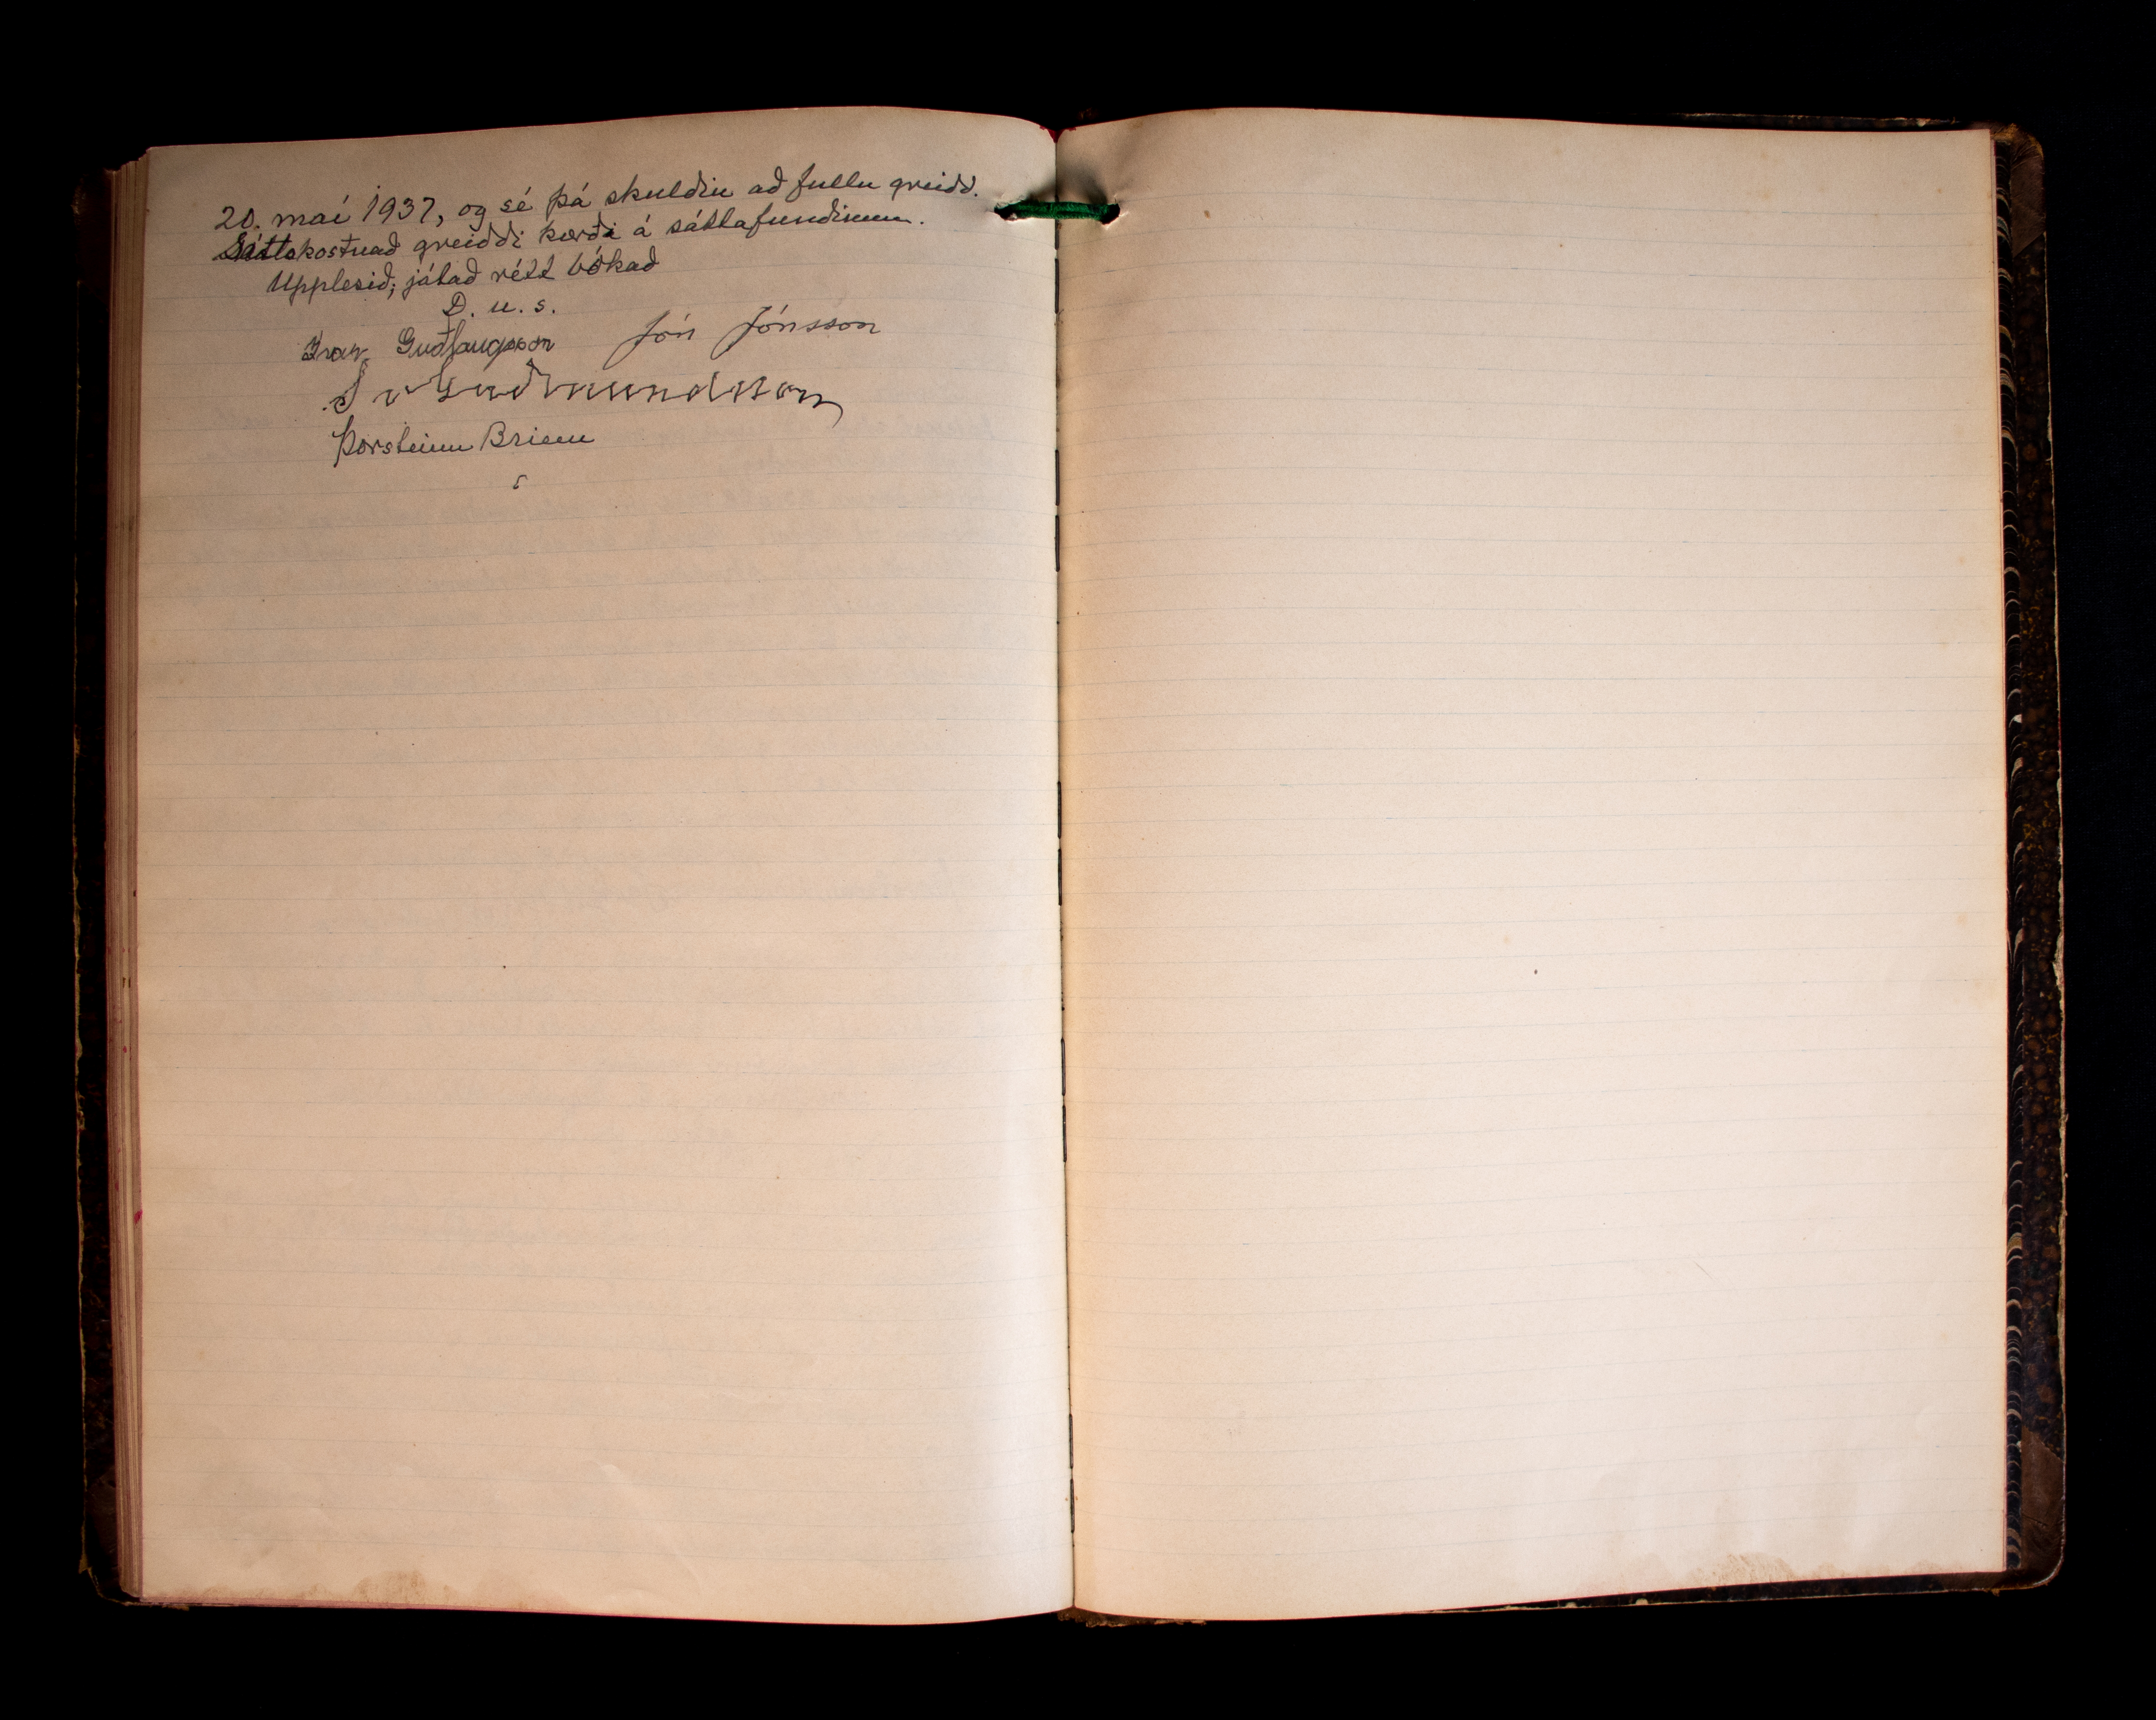 20. maí 1937, og sé þá skuldin að fullu greidd.
Sáttakostnað greiddi kærði á sáttafundinum.
Upplesið; játað rétt bókað
D. u. s.
Guðlaugsson Jón Jónsson
Guðmundsson
Þorsteinn Briem